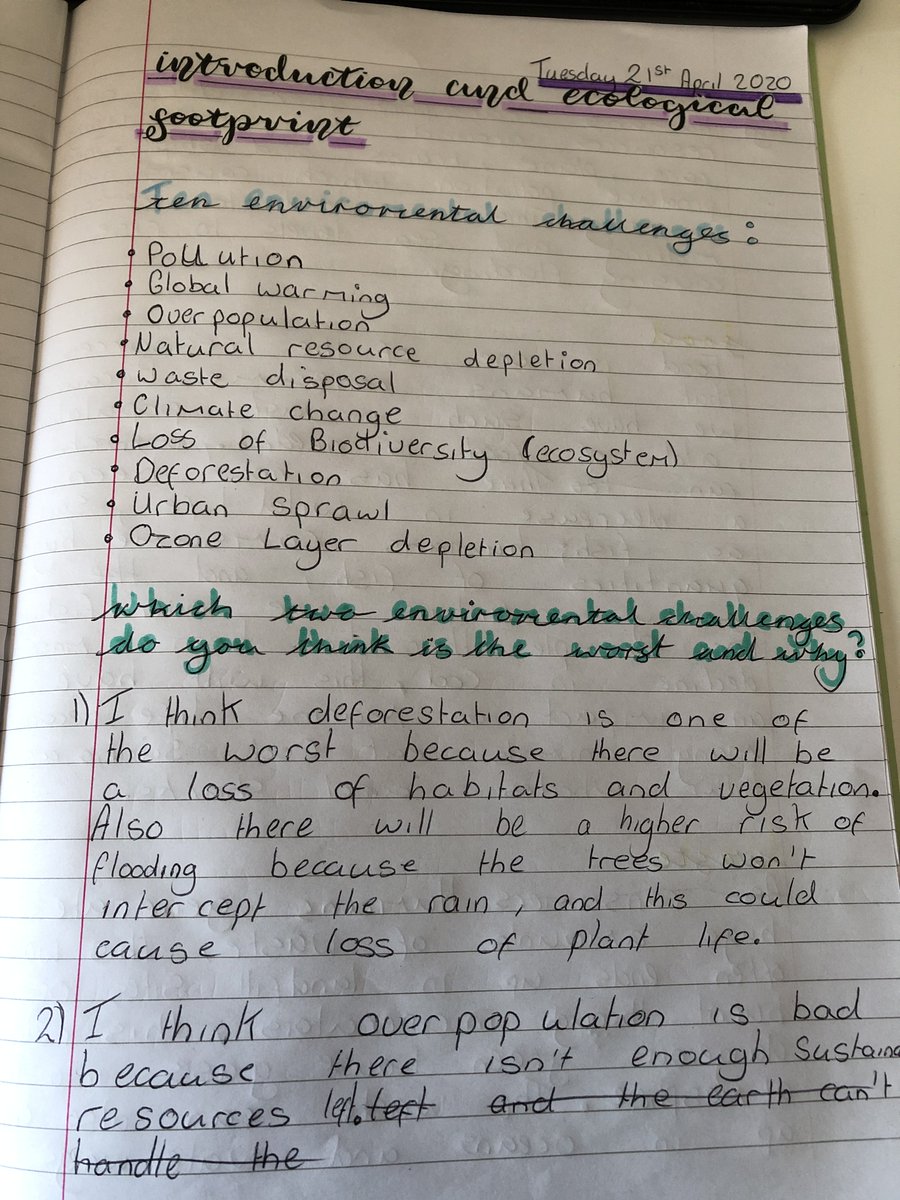 Tuesday 21st April 2020
introduction and ecological
footprint
Ten enviromental challenges:
• Pollution
• Global warming
• Overpopulation
• Natural resource depletion
• Waste disposal
• Climate change
• Loss of Biodiversity (ecosystem)
• Deforestation
• Urban sprawl
• Ozone Layer depletion
Which two enviromental challenges
do you think is the worst and why?
1) I think deforestation is one of
the worst because there will be
a loss of habitats and vegetation.
Also there will be a higher risk of
flooding because the trees won't
intercept the rain, and this could
cause loss of plant life.
2) I think overpopulation is bad
because there isn't enough
resources left. left and the earth can't
handle the